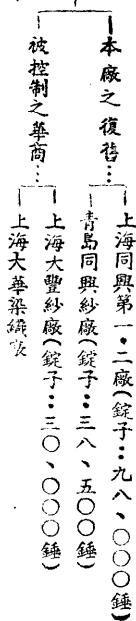 本廠之復舊⋯
上海同興第一・二廠(錠子：九八、〇〇〇錘)
青島同興紗廠(錠子：三八、五〇〇錘)
被控制之華商⋯
上海大豐紗廠(錠子：三〇、〇〇〇錘)
上海大華染織廠